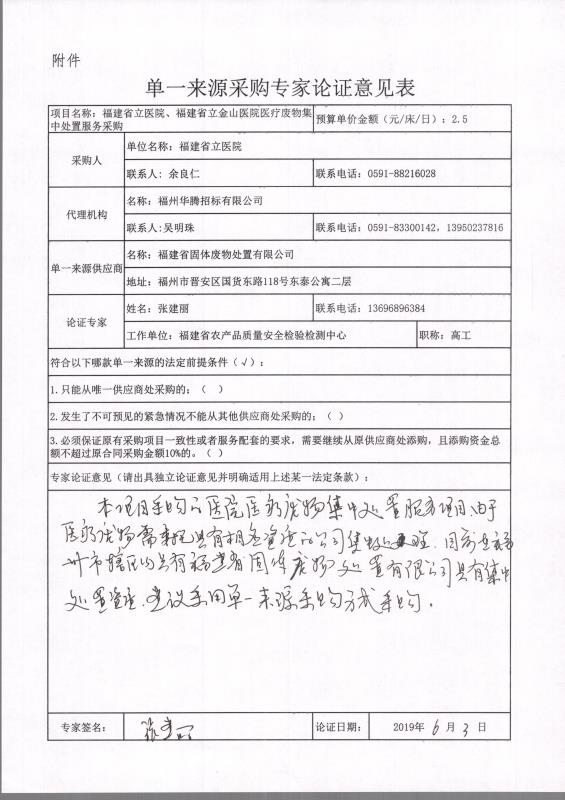 附件
单一来源采购专家论证意见表
项目名称：福建省立医院、福建省立金山医院医疗废物集中处置服务采购
预算单价金额（元/床/日）：2.5
采购人
单位名称：福建省立医院
联系人：余良仁
联系电话：0591-88216028
代理机构
名称：福州华腾招标有限公司
联系人：吴明珠
联系电话：0591-83300142，13950237816
单一来源供应商
名称：福建省固体废物处置有限公司
地址：福州市晋安区国货东路118号东泰公寓二层
论证专家
姓名：张建丽
联系电话：13696896384
工作单位：福建省农产品质量安全检验检测中心
职称：高工
符合以下哪款单一来源的法定前提条件（√）：
1.只能从唯一供应商处采购的；（ ）
2.发生了不可预见的紧急情况不能从其他供应商处采购的；（ ）
3.必须保证原有采购项目一致性或者服务配套的要求，需要继续从原供应商处添购，且添购资金总额不超过原合同采购金额10%的。（ ）
专家论证意见（请出具独立论证意见并明确适用上述某一法定条款）：
本项目采购的医院医疗废物集中处置服务项目，由于
医疗废物需委托具有相应资质的公司集中处理，目前在福
州市辖区内只有福建省固体废物处置有限公司具有集中
处置资质，建议采用单一来源采购方式采购。
专家签名：
张建丽
论证日期：
2019年 6 月 3 日